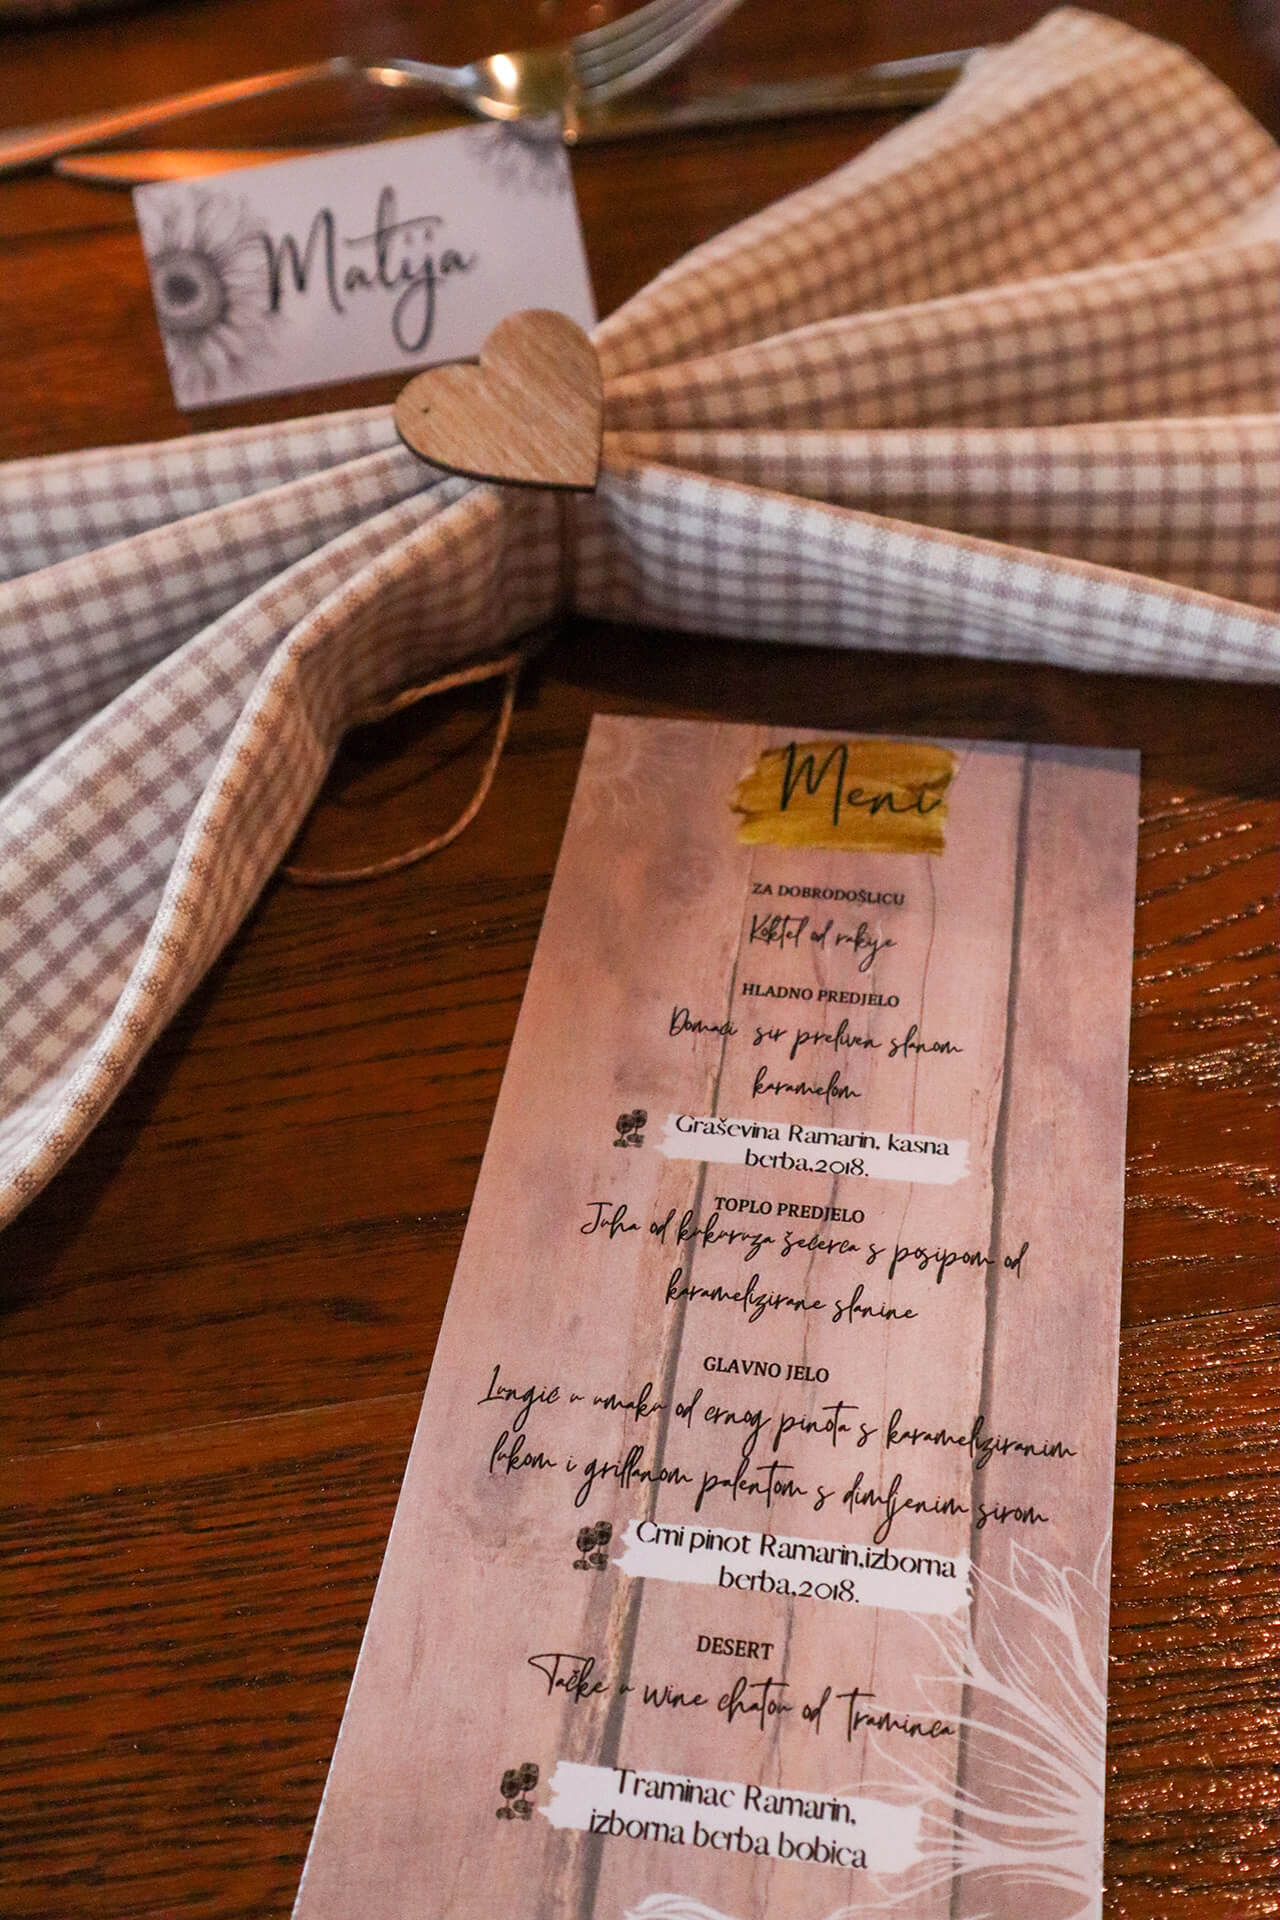 Matija
Meni
ZA DOBRODOŠLICU
Koktel od rakije
HLADNO PREDJELO
Domaći sir preliven slanom
karamelom
Graševina Ramarin, kasna
berba,2018.
TOPLO PREDJELO
Juha od kukuruza šećerca s posipom od
karamelizirane slanine
GLAVNO JELO
Lungić u umaku od crnog pinota s karameliziranim
lukom i grillanom palentom s dimljenim sirom
Crni pinot Ramarin,izborna
berba,2018.
DESERT
Tačke u wine chatou od Traminca
Traminac Ramarin,
izborna berba bobica